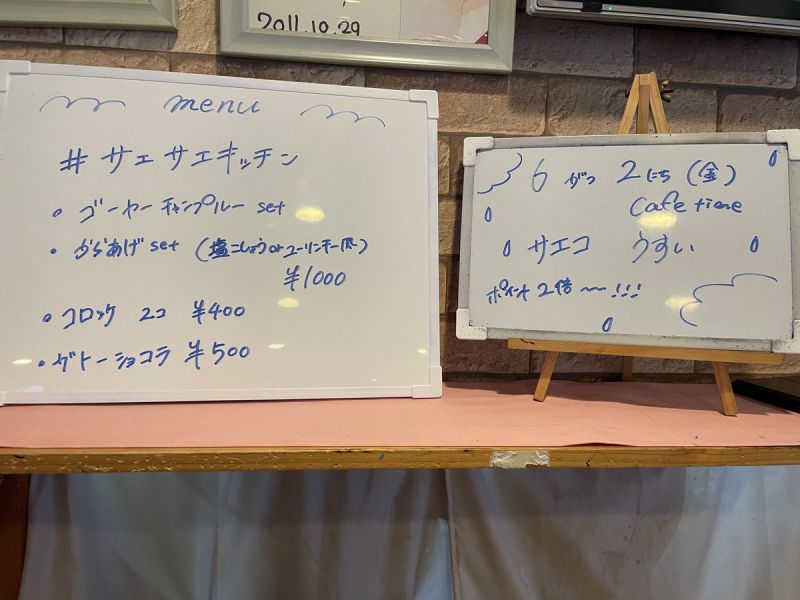 2011.10.29
menu
#サエサエキッチン
・ゴーヤーチャンプルー set
・からあげ set (塩こしょう or ユーリンチー風)
¥1000
・コロッケ 2コ ¥400
・ガトーショコラ ¥500
6がつ 2にち (金)
Cafe time
サエコ うすい
ポイント2倍〜!!!